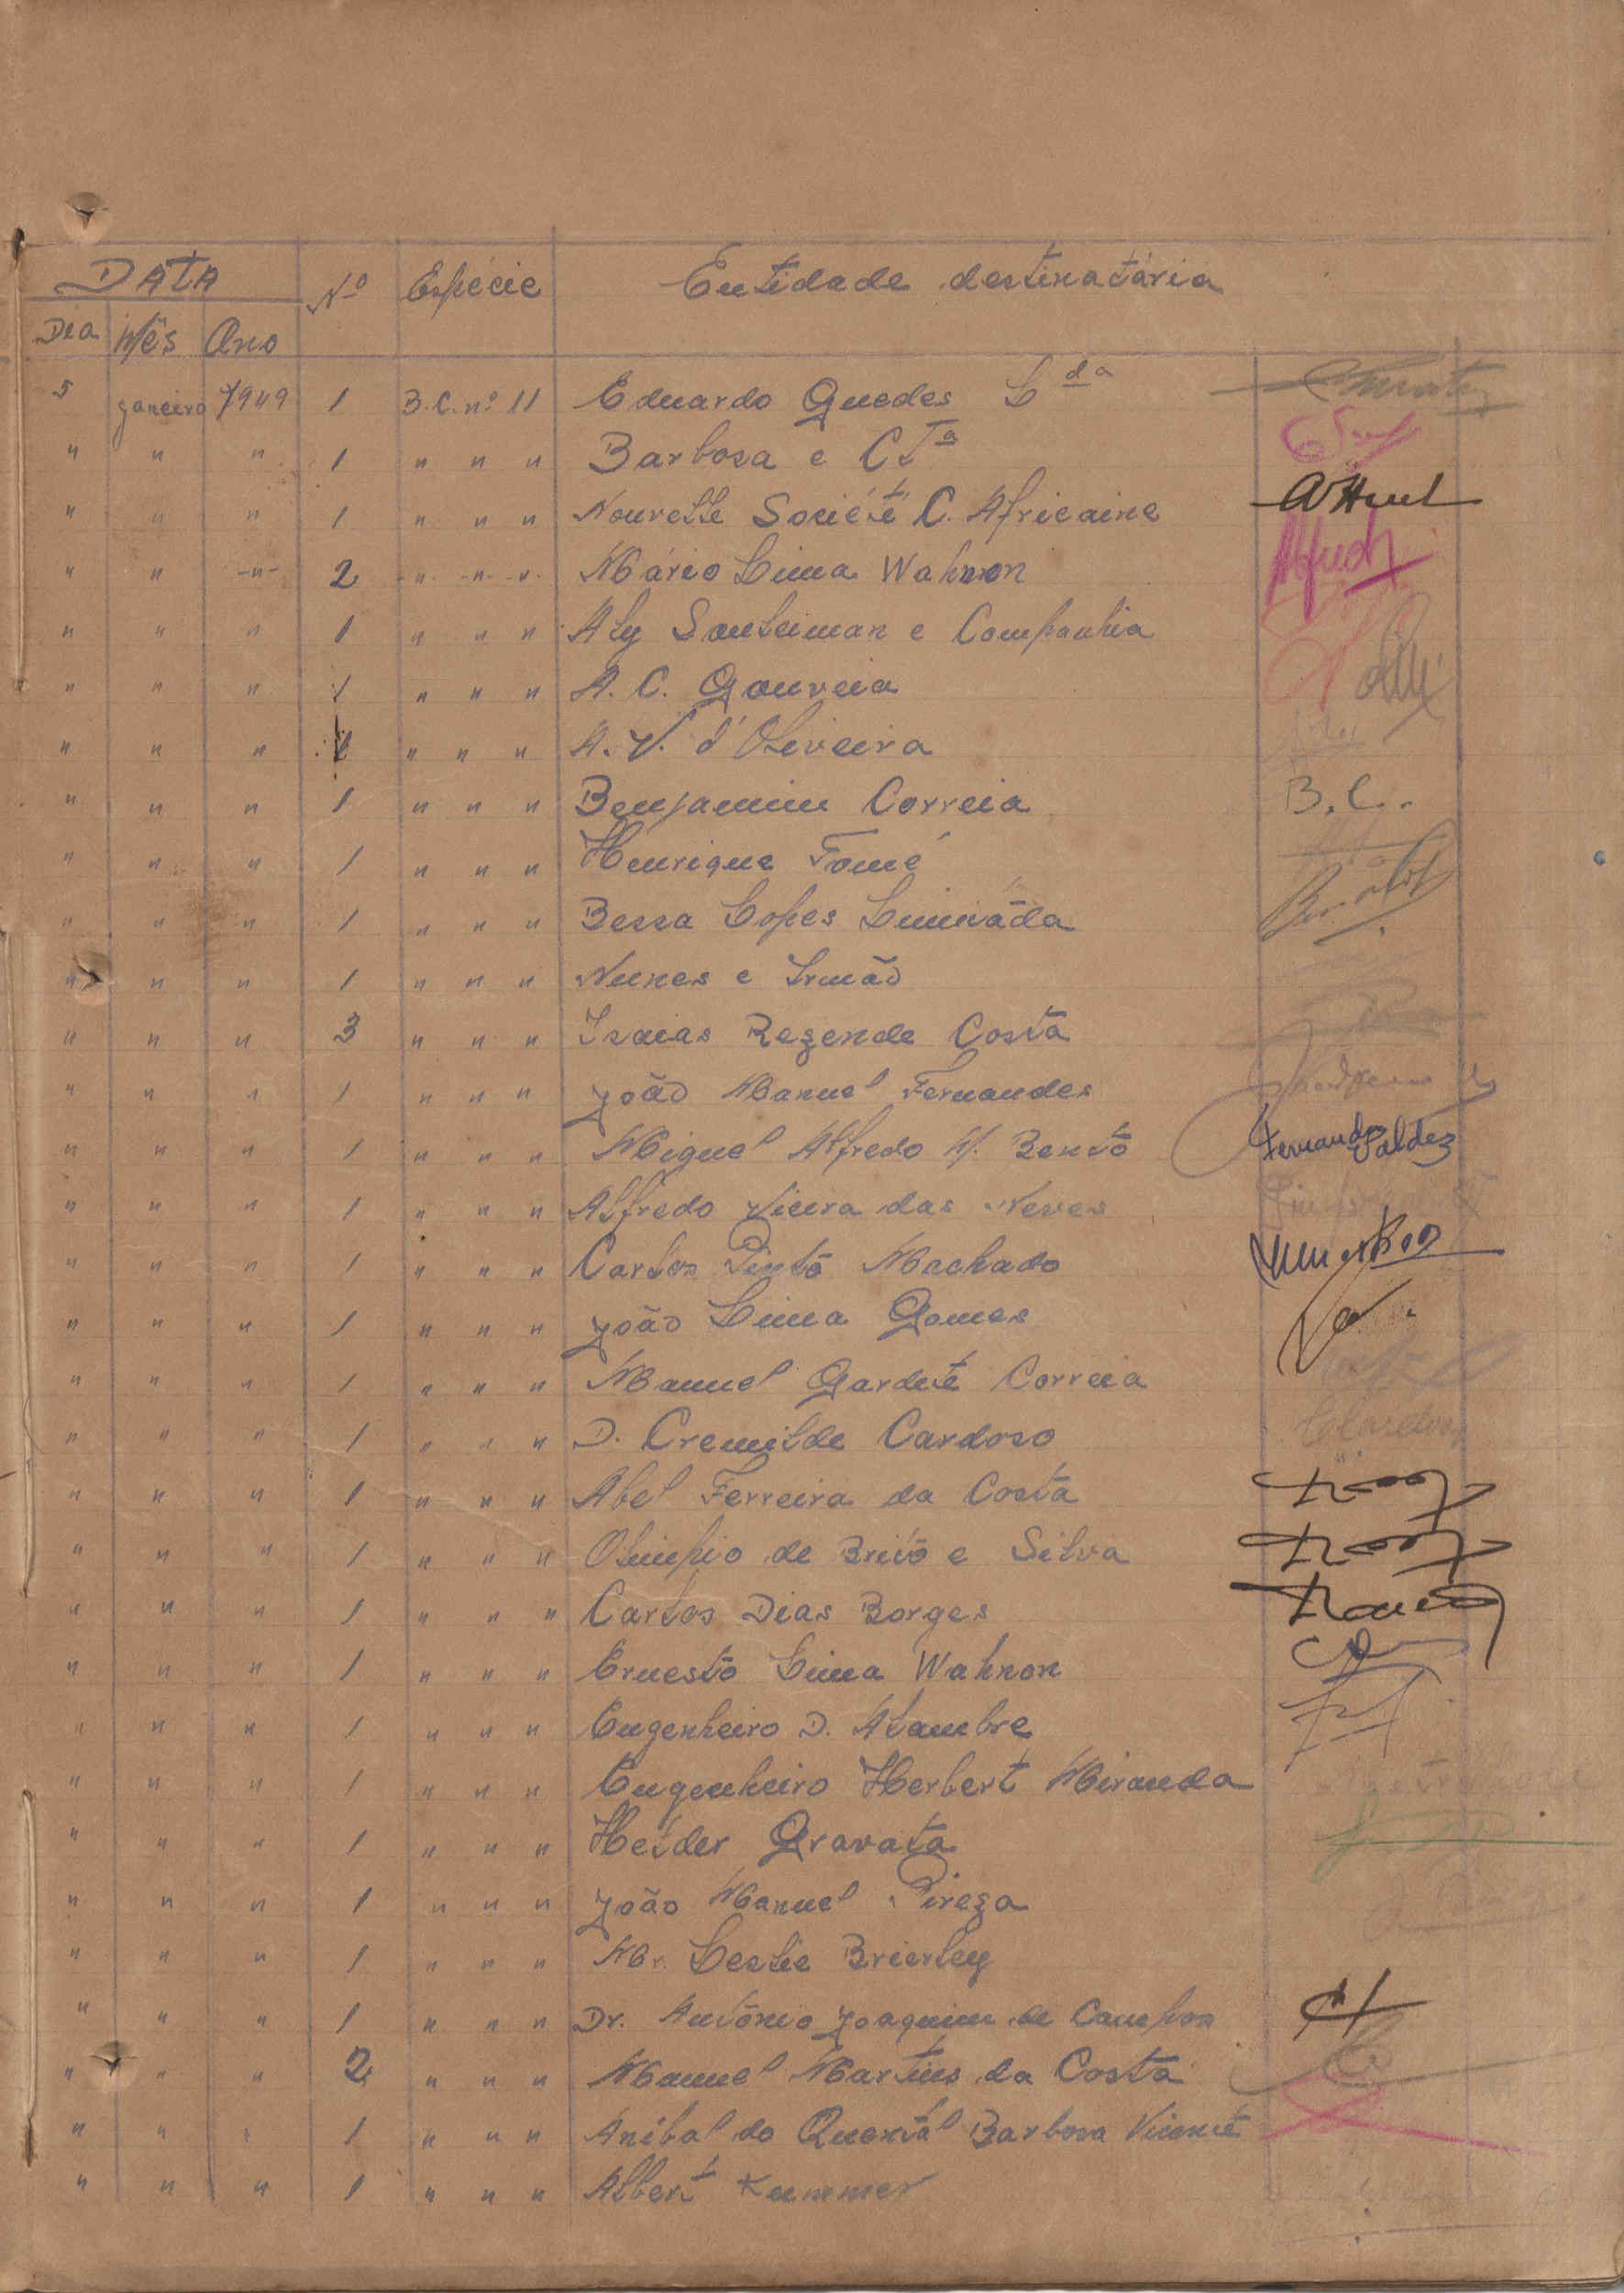 DATA Nº Espécie Entidade destinatária
Dia Mês Ano
5 Janeiro 1949 1 B.C. nº 11 Eduardo Guedes Lda
" " " 1 " " " Barbosa e Cta
" " " 1 " " " Nouvelle Société C. Africaine
" " -"- 2 -"- -"- -"- Mário Lima Wahnon
" " " 1 " " " Aly Souleiman e Companhia
" " " 1 " " " A. C. Gouveia
" " " 1 " " " A. V. d'Oliveira
" " " 1 " " " Benjamim Correia B.C.
" " " 1 " " " Henrique Tomé
" " " 1 " " " Bessa Lopes Limitada
" " " 1 " " " Nunes e Irmão
" " " 3 " " " Isaias Rezende Costa
" " " 1 " " " João Manuel Fernandes
" " " 1 " " " Miguel Alfredo M. Bento Fernando Valdez
" " " 1 " " " Alfredo Vieira das Neves
" " " 1 " " " Carlos Pinto Machado
" " " 1 " " " João Lima Gomes
" " " 1 " " " Manuel Gardete Correia
" " " 1 " " " D. Cremilde Cardoso
" " " 1 " " " Abel Ferreira da Costa
" " " 1 " " " Olimpio de Brito e Silva
" " " 1 " " " Carlos Dias Borges
" " " 1 " " " Ernesto Lima Wahnon
" " " 1 " " " Engenheiro D. Alambre
" " " 1 " " " Engenheiro Herbert Miranda
" " " 1 " " " Helder Gravata
" " " 1 " " " João Manuel Pireza
" " " 1 " " " Mr. Leslie Brierley
" " " 1 " " " Dr. António Joaquim de Campos
" " " 2 " " " Manuel Martins da Costa
" " " 1 " " " Aníbal do Quental Barbosa Vicente
" " " 1 " " " Albert Kummer